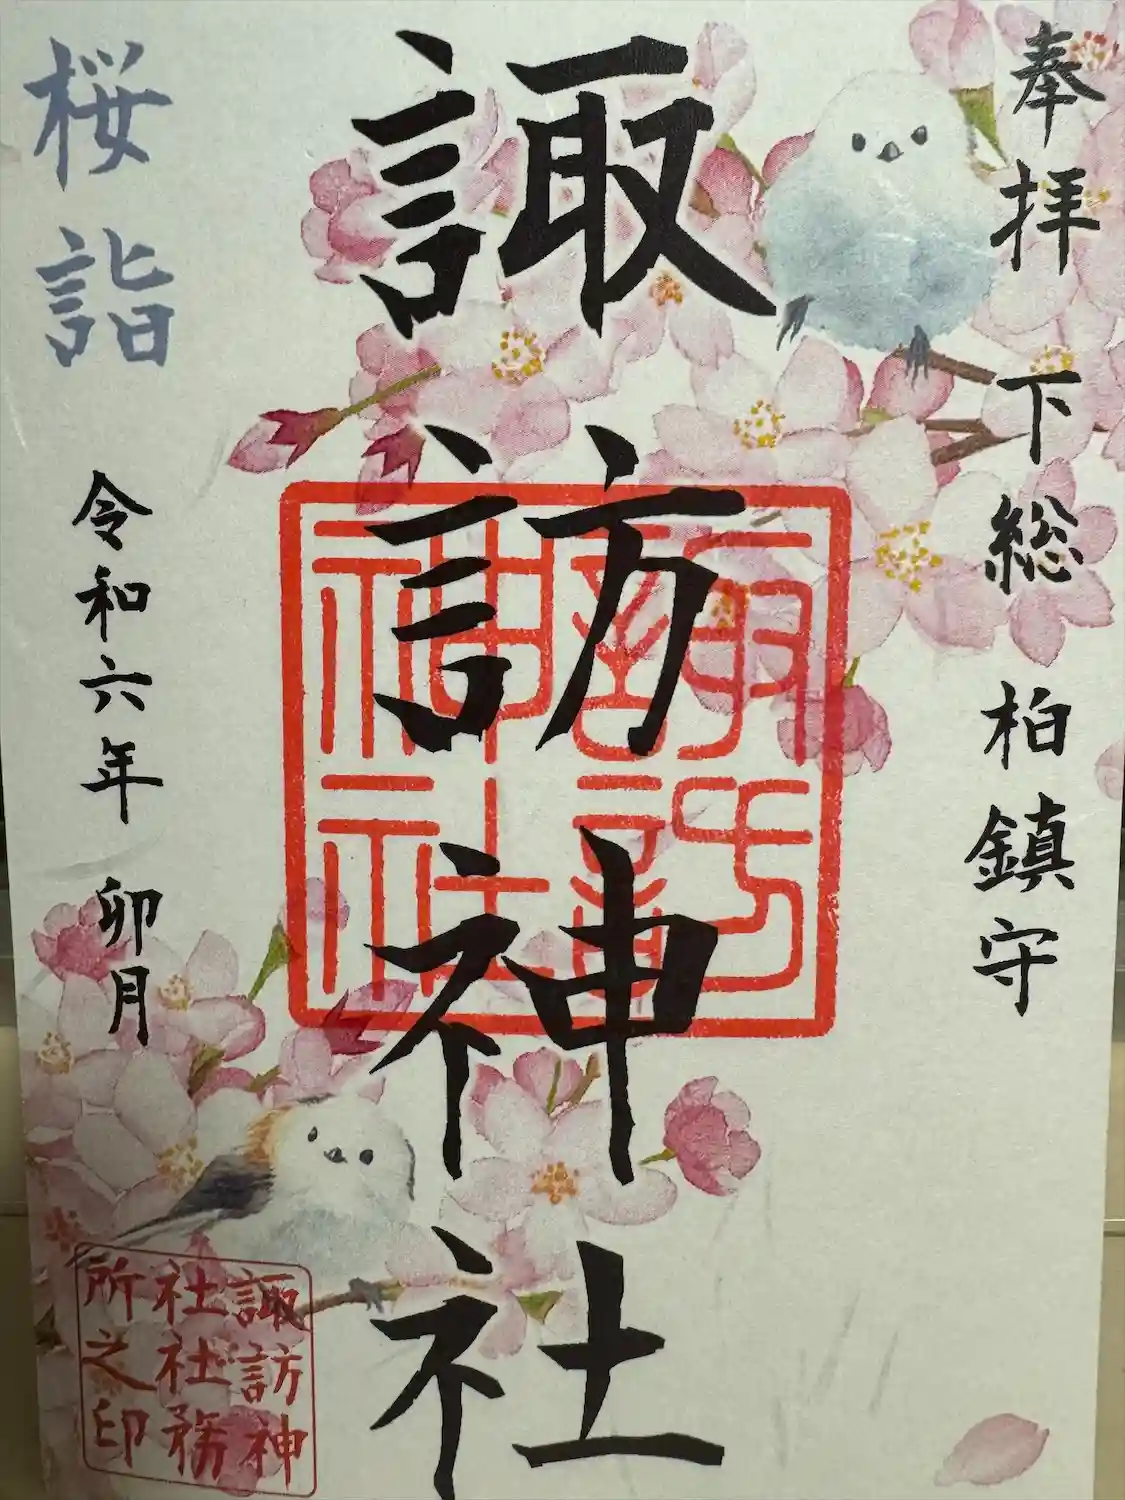 奉拝
下総
柏鎮守
諏訪神社
諏訪
神社
桜詣
令和六年
卯月
諏訪神
社社務
所之印